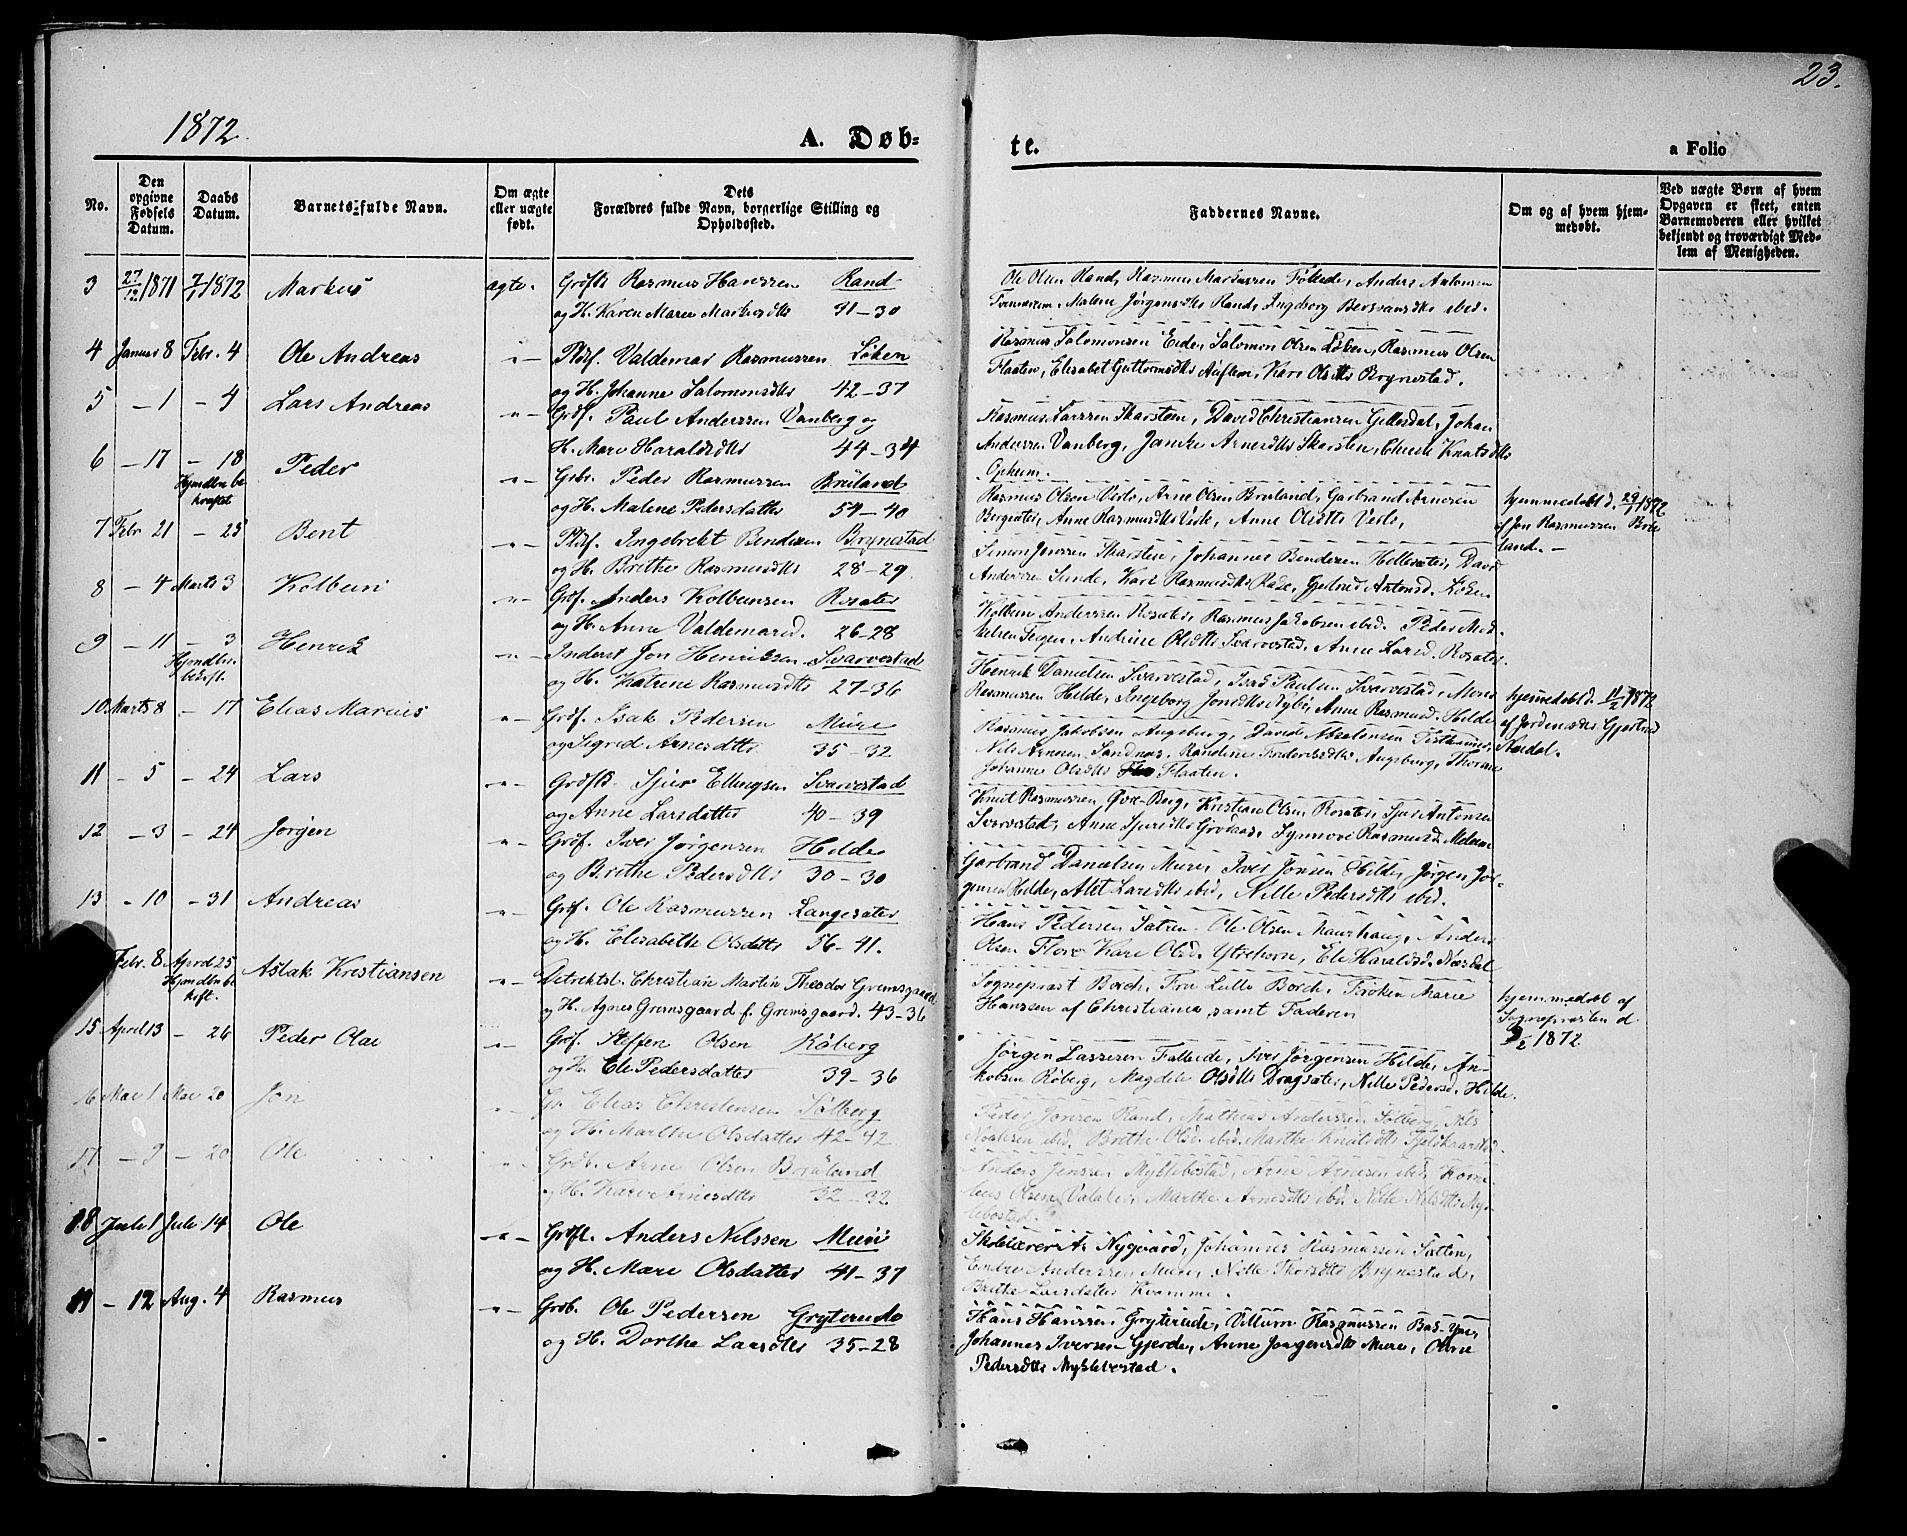 23.
1872.
A. Døb-
te.
a Folio
No.
Den opgivne Fødsels Datum.
Daabs Datum.
Barnets fulde Navn.
Om ægte eller uægte født.
Dets Forældres fulde Navn, borgerlige Stilling og Opholdssted.
Faddernes Navne.
Om og af hvem hjem-
medøbt.
Ved uægte Børn af hvem
Opgaven er skeet, enten
Barnemoderen eller hvilket
bekjendt og troværdigt Med-
lem af Menigheden.
3 27/12 1871 7/1 1872 Markus ægte. Grdfstr Rasmus Hanssen Rand
og H. Karen Marie Markusdtr 31-30
Ole Olsen Rand, Rasmus Markussen Anders Antonsen
Malene Jørgensdtr Rand, Ingeborg ibid.
4 Januar 8 Febr. 4 Ole Andreas -"- Pldsf. Valdemar Rasmussen Løken
og H. Johanne Salomonsdtr 42-37
Rasmus Salomonsen Eide, Salomon Olsen Løken, Rasmus Olsen
Flaaten, Elisabet Guttormsdtr Auflem, Kari Olsdtr Brynestad.
5 - 1 - 4 Lars Andreas -"- Grdf. Paul Anderssen Vanberg og
H. Mari Haraldsdtr 44-34
Rasmus Larssen Skarsten, David Christiansen Gillesdal, Johan
Anderssen Vanberg, Arnesdtr Skarsten, Knutsdtr
Opheim.
6 - 17 - 18 Peder -"- Gbr. Peder Rasmussen Bruland
Hjmdbn be-
kræftet
og H. Malene Pedersdatter 54-40
Rasmus Olsen Vereide, Arne Olsen Bruland, Garbrand Arnesen
Anne Rasmusdtr Anne Olsdtr
hjemmedøbt d. 29/1 1872
af Jon Rasmussen Bru-
land. -
7 Febr 21 - 25 Bent -"- Pldsf. Ingebrekt Bendixen Brynestad
og H. Brithe Rasmusdtr 28-29.
Simon Jenssen Skarsten, Johannes Bendixen David
Anderssen Sende, Kari Rasmusdtr Gjertrud Antonsd. Løken
8 - 4 Marts 3 Kolbein -"- Grdf. Anders Kolbeinsen Rosæter
og H. Anne Valdemarsd. 26-28
Kolbein Anderssen Rosæter, Rasmus Jakobsen ibid. Peder Mik-
kelsen Teigen, Andrine Olsdtr Svarvestad, Anne Larsd. Rosæter
9 - 11 - 3 Henrik -"- Inderst Jon Henriksen Svarvestad
Hjmdbn.
bekrft.
og H. Katrine Rasmusdtr 27-36
Henrik Danielsen Svarvestad, Isak Paulsen Svarvestad,
Rasmussen Hilde, Ingeborg Jonsdtr Nybø, Anne Rasmusd. Hilde
hjemmedøbt d. 11/2 1872
af Jordemoder Gjertrud
10 Marts 8 - 17 Elias Marius -"- Grdf. Isak Pedersen Muri
og Sigrid Arnesdtr 35-32
Rasmus Jakobsen Augsburg, David Absalonsen
Nils Arnesen Sandnes, Randine Frederiksdtr Augsburg,
Johanne Olsdtr Flaaten.
11 - 5 - 24 Lars -"- Grdfstr. Sjur Ellingsen Svarvestad
og Anne Larsdatter 40-39
Knut Rasmussen Øvre-Berg, Kristian Olsen Rosæter, Sjur Antonsen
Svarvestad, Anne Sjursdtr Synnøve Rasmusd. Melheim
12 - 3 - 24 Jørgen -"- Grdf. Iver Jørgensen Hilde
og Brithe Pedersdtr 30-30
Garbrand Danielsen Muri, Iver Jonsen Hilde, Jørgen Jør-
gensen Hilde, Alet Larsdtr ibid, Nille Pedersdtr ibid.
13 - 10 - 31 Andreas -"- Grdf. Ole Rasmussen Langesæter
og H. Elisabethe Olsdatter 56-41.
Hans Pedersen Sætren, Ole Olsen Maurhaug, Anders
Olsen Flore, Kari Olsd. Ytrehorn, Eli Haraldsd. Næsdal
Febr. 8 April 25 Aslak Kristiansen -"- Distriktsl. Christian Martin Theodor Gremsgaard
Hjmdbn be-
krft.
og H. Agnes Gremsgaard f. Gremsgaard. 43-36
Sogneprest Borch, Fru Lulle Borch, Frøken Marie
Hanssen af Christiania, samt Faderen
hjemmedøbt af
Sognepresten d.
9/2 1872
15 April 13 - 26 Peder Olai -"- Grdf. Steffen Olsen Røberg
og H. Eli Pedersdatter 39-36
Jørgen Lassesen Falleide, Iver Jørgensen Hilde, An-
Røberg, Magdeli Olsdtr Dragsæter, Nille Pedersd. Hilde.
16 Mai 1 Mai 20 Jon -"- Gr. Elias Christensen Solberg
og H. Marthe Olsdatter 42-42
Peder Jonsen Rand, Mathias Anderssen Solberg, Nils
Noahsen ibid. Brithe Olsd. ibid. Marthe Knutsdtr
17 - 9 - 20 Ole -"- Grdb. Arne Olsen Bruland
og H. Kari Arnesdtr 32-32
Anders Jenssen Myklebostad, Arne Arnesen ibid, Korne-
lius Olsen Marthe Arnesdtr ibid, Nille Nilsdtr Myk-
lebostad.
18 Juli 1 Juli 14 Ole -"- Grdf. Anders Nilssen Muri
og H. Mari Olsdatter 41-37
Skolelærer A. Nygaard, Johannes Rasmussen Sætten,
Endre Anderssen Muri, Nille Brynestad,
Brithe Larsdatter Kvamme.
19 - 12 Aug. 4 Rasmus -"- Grdb. Ole Pedersen Gryteriede
og H. Dorthe Larsdtr 35-28
Hans Hanssen Gryteriede, Villum Rasmussen
Johannes Iversen Gjerde, Anne Jørgensdtr Muri, Oline
Pedersdtr Myklebostad.